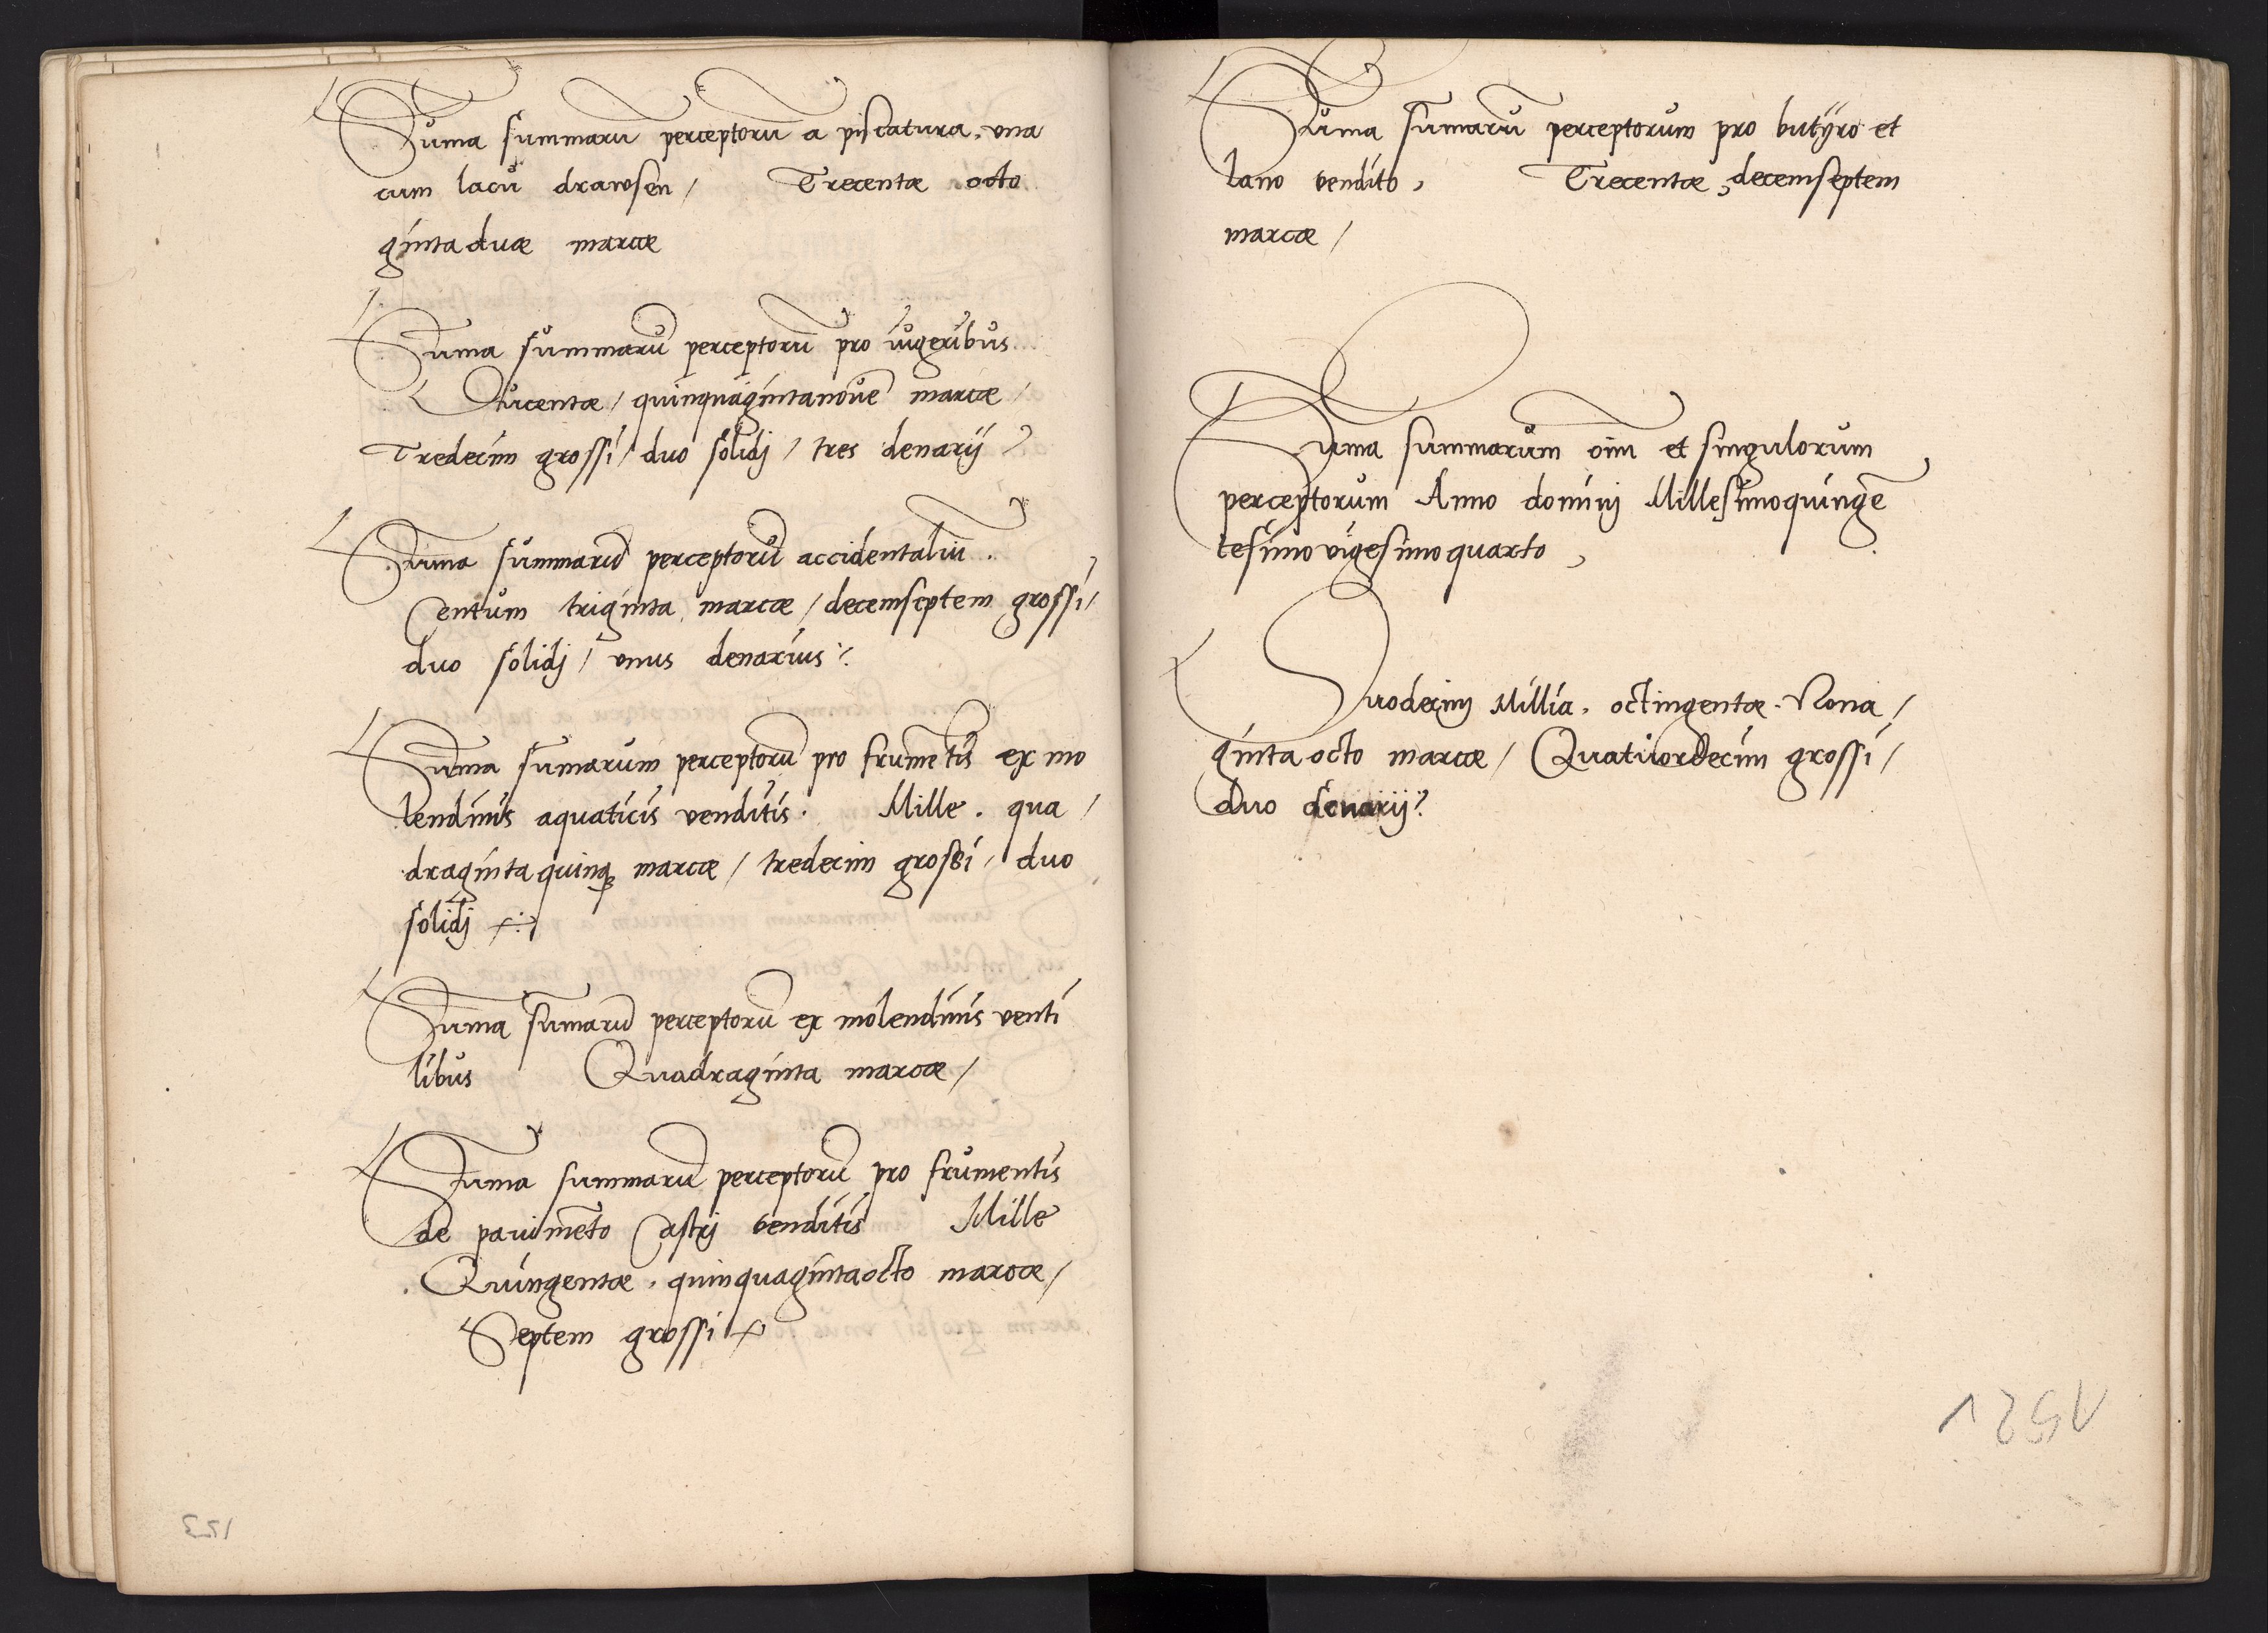 Suma summaru perceptoru a piscatura, vna
cum lacu drawsen / Trecentæ octo
ginta duæ marcæ
Suma summaru perceptoru pro iugeribus
Ducentæ / quinquagintanoue marcæ /
Tredecim grossi / duo solidj / tres denarij
Suma summaru perceptoru accidentaliu.
Centum triginta marcæ / decemseptem grossi /
duo solidj / vnus denarius
Suma sumarum perceptoru pro frumetis ex mo
lendinis aquaticis venditis. Mille. qua /
draginta quinqꝫ marcæ / tredecim grossi / duo
solidj
Suma sumaru perceptoru ex molendinis venti
libus Quadraginta marcæ /
Suma summaru perceptoru pro frumentis
de pauimeto Castrj venditis Mille
Quingentæ, quinquagintaocto marcæ /
Septem grossi
153
Suma sumaru perceptorum pro butÿro et
lano vendito, Trecentæ, decemseptem
marcæ /
Suma summarum oim et singulorum
perceptorum Anno dominj Millesimoquinge
tesimo vigesimo quarto,
Duodecim Millia, octingentæ. Nona /
ginta octo marcæ / Quatuordecim grossi /
duo denarij